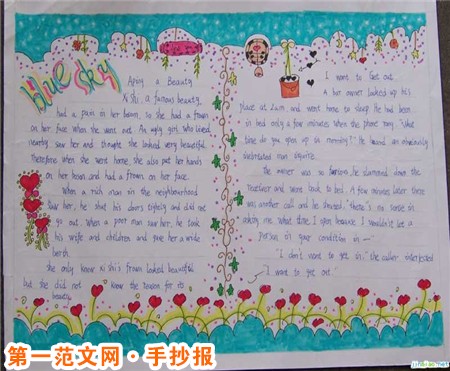 blue sky
Aping a Beauty
Xi shi, a famous beauty,
had a pain in her bosom, so she had a frown
on her face when she went out. An ugly girl who lived
nearby saw her and thought she looked very beautiful.
Therefore when she went home, she also put her hands
on her bosom and had a frown on her face.
When a rich man in the neighbourhood
saw her, he shut his doors tightly and did not
go out. When a poor man saw her, he took
his wife and children and gave her a wide
berth.
She only knew Xi shi's frown looked beautiful
but she did not know the reason for its
beauty.
I want to get out
A bar owner locked up his
place at 2 a.m. and went home to sleep. He had been
in bed only a few minutes when the phone rang. "What
time do you open up in morning?" He heard an obviously
inebriated man inquire.
The owner was so furious, he slammed down the
receiver and went back to bed. A few minutes later there
was another call and he
"There's no sense in
asking me what time I open because I wouldn't let a
person in your condition in—"
"I don't want to get in," the caller interjected
"I want to get out."
第一范文网·手抄报